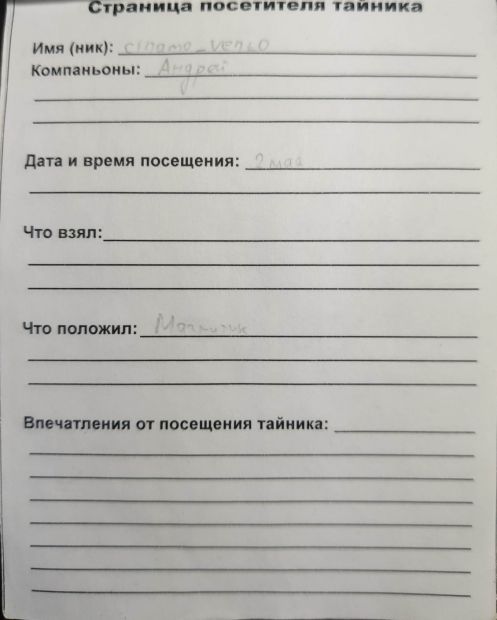 Страница посетителя тайника
Имя (ник):
Компаньоны: Андрей
Дата и время посещения: 2 мая
Что взял:
Что положил: Магнитик
Впечатления от посещения тайника: